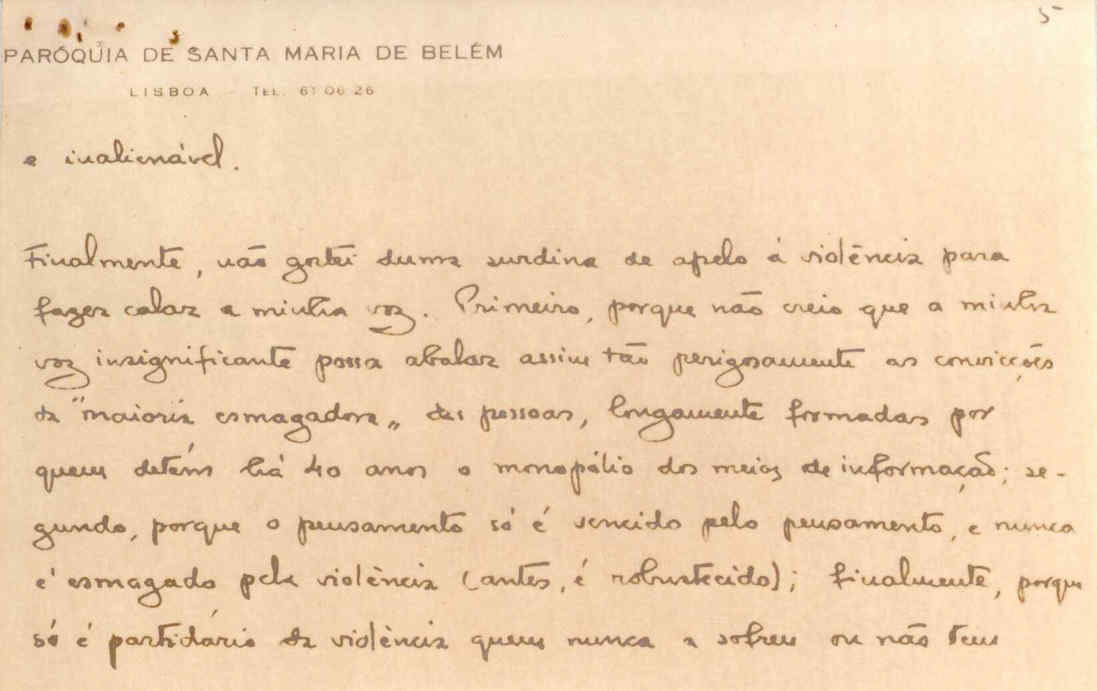 5
PARÓQUIA DE SANTA MARIA DE BELÉM
LISBOA TEL. 61 06 26
e inalienável.
Finalmente, não gostei duma surdina de apelo à violência para
fazer calar a minha voz. Primeiro, porque não creio que a minha
voz insignificante possa abalar assim tão perigosamente as convicções
da "maioria esmagadora" das pessoas, longamente formadas por
quem detém há 40 anos o monopólio dos meios de informação; se-
gundo, porque o pensamento só é vencido pelo pensamento, e nunca
é esmagado pela violência (antes, é robustecido); finalmente, porque
só é partidário da violência quem nunca a sofreu ou não tem